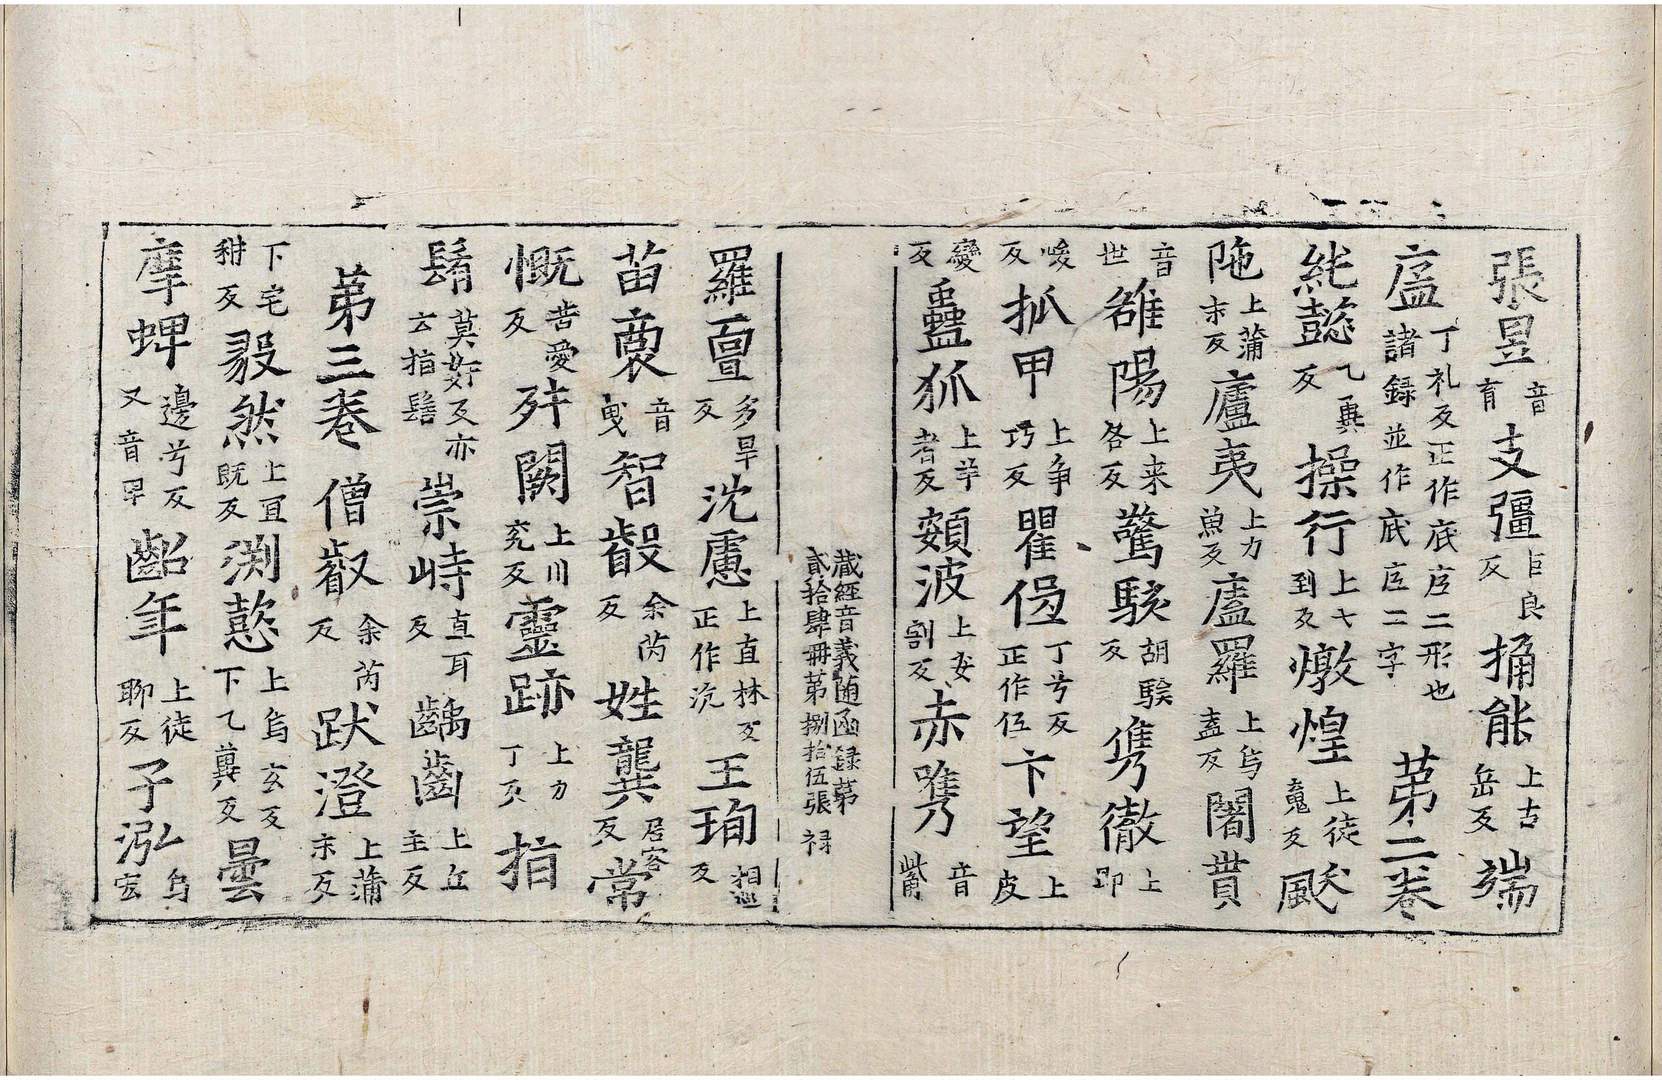 張昱音育支彊巨良反捅能上古岳反端
庢丁礼反正作底庢二形也諸録並作底庢二字第二卷
紕懿乙兾反操行上七到反燉煌上徒䰟反颰
陁上蒲末反廬夷上力魚反廅羅上烏盖反闍貰
音世雒陽上来各反驚駭胡騃反儁徹上
唆反抓甲上爭巧反瞿侸丁兮反正作伍卞望上皮
變反蠱狐上羊者反頞波上安割反赤㒞音觜
藏經音義隨函録第貳拾肆冊第捌拾伍張禄
羅亶多旱反沈慮上直林反正作沉王珣相巡反
苗裔音曳智叡余芮反姓龔居容反常
慨苦愛反舛闕上川兖反靈跡上力丁反指
髾莫好反亦云指髻崇峙直耳反齲齒上丘主反
第三卷僧叡余芮反跋澄上蒲末反
下宅耕反毅然上宜既反淵懿上烏玄反下乙兾反曇
摩蜱邊兮反又音卑齠年上徒聊反子泓烏宏